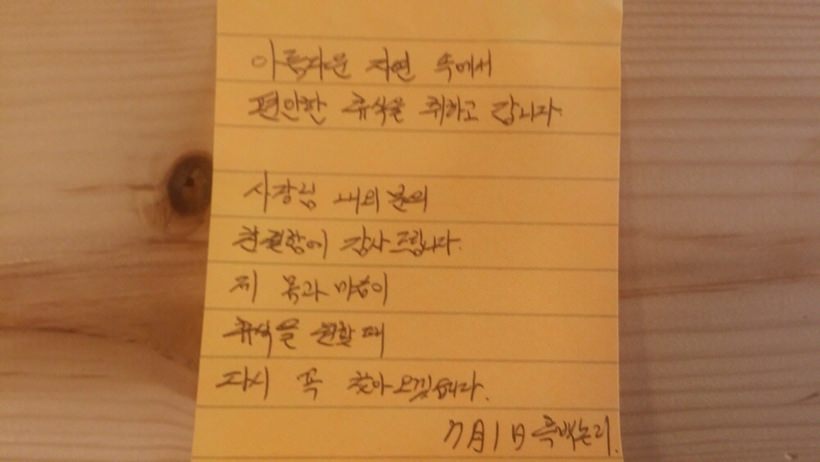 아름다운 자연 속에서
편안한 휴식을 취하고 갑니다
사장님 내외 분의
친절함에 감사 드립니다.
지 몸과 마음이
휴식을 원할 때
다시 꼭 찾아 오겠습니다.
7月1日